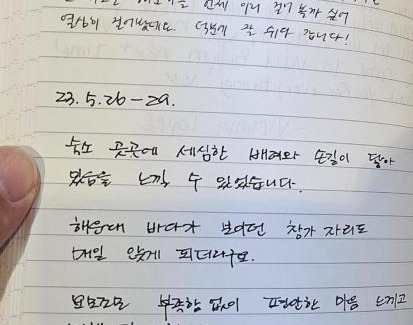 언제 이리 걸어 볼까 싶어
열심히 걸어봤네요. 덕분에 잘 쉬다 갑니다!
23.5.26-29.
숙소 곳곳에 세심한 배려와 손길이 닿아
있음을 느낄 수 있었습니다.
해운대 바다가 보이던 창가 자리도
매일 앉게 되더라구요.
부족함 없이 편안한 마음 느끼고